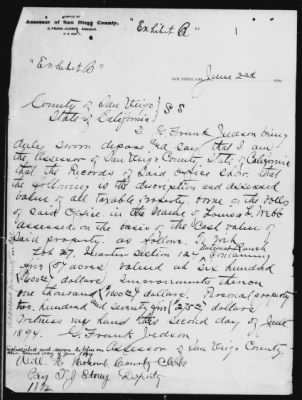 OFFICE OF
Assessor of San Diego County.
F. FRANK JUDSON, ASSESSOR.
"Exhibit A"
"Exhibit B"
June 2nd
County of San Diego } S S
State of California }
I F. Frank Judson being
duly sworn depose and say that I am
the Assessor of San Diego County State of California
that the Records of said office show that
the following is the description and assessed
value of all taxable property on the Rolls
of said office in the Name of Louisa L. Webb
assessed on the basis of the Cash value of
Said property, as follows. To wit
National Ranch
Lot 27 Quarter Section 124 containing
five (5) acres valued at Six hundred
dollars Improvements thereon
one thousand dollars. Personal property
two hundred and seventy five dollars
Witness my hand this Second day of June
1894. F. Frank Judson
Assessor of San Diego County.
Subscribed and sworn to before
me this second day of June 1894
Will H. Holcomb County Clerk
By T. J. Storey Deputy